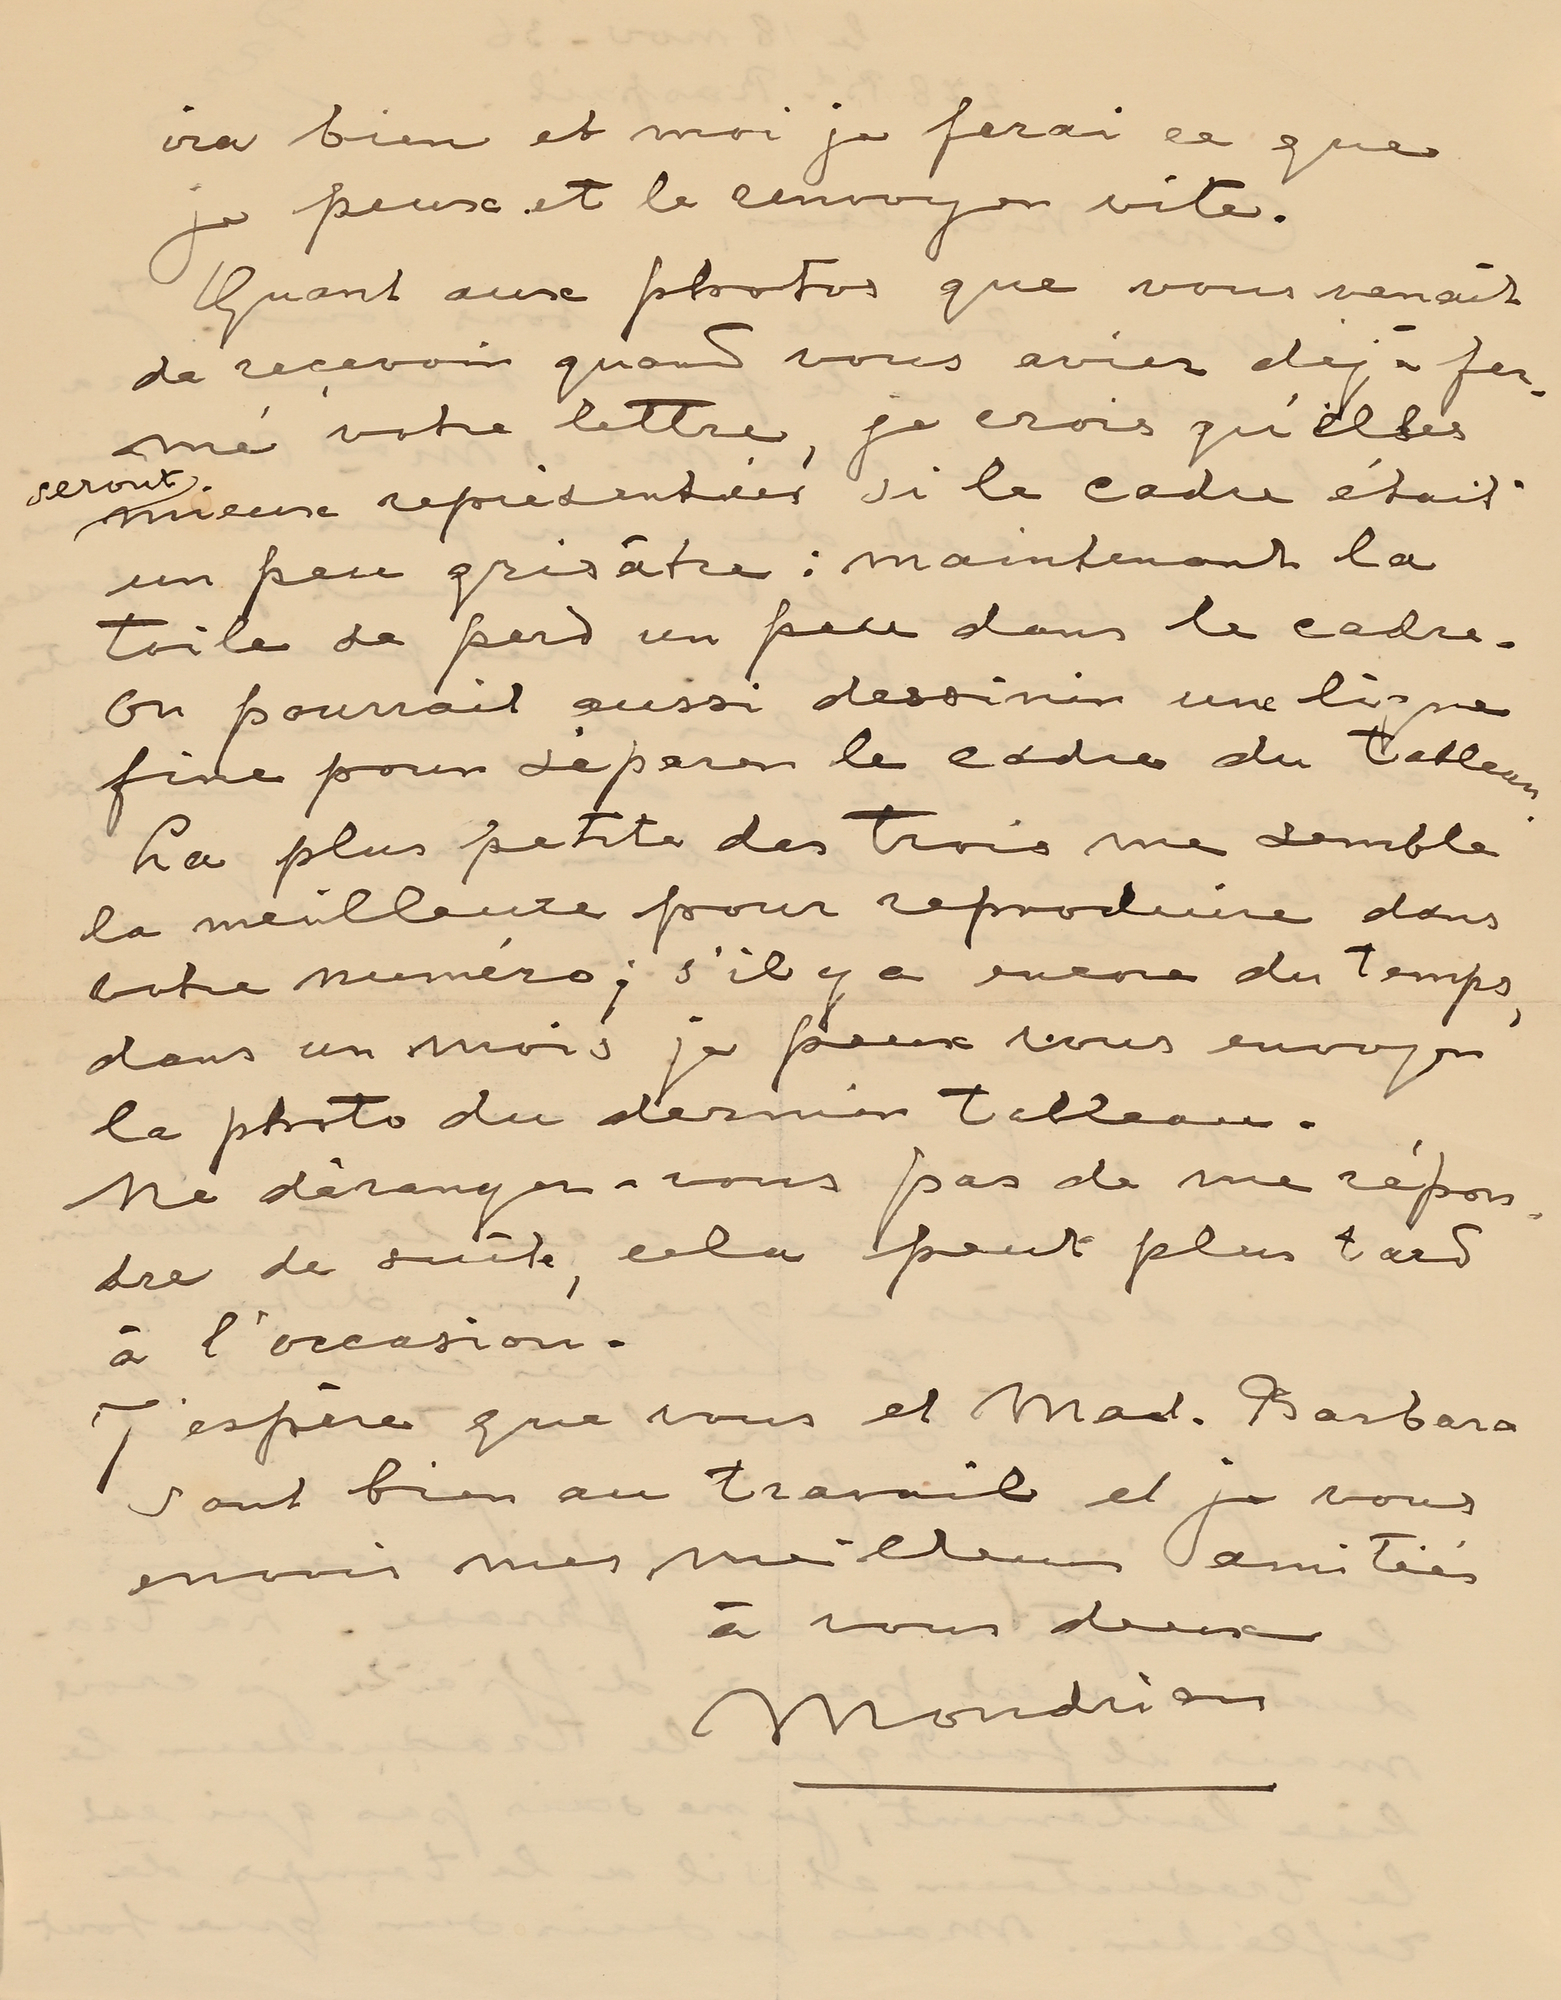 ira bien et moi je ferai ce que
je peux et le renvoyer vite.
Quant aux photos que vous venait
de recevoir quand vous aviez déjà fer-
mé votre lettre, je crois qu'elles
seront
mieux représentées si le cadre était
un peu grisâtre : maintenant la
toile se perd un peu dans le cadre.
On pourrait aussi dessinin une ligne
fine pour séparer le cadre du tableau.
La plus petite des trois me semble
la meilleure pour reproduire dans
votre numéro; s'il y a encore du temps,
dans un mois je peux vous envoyer
la photo du dernier tableau.
Ne déranger-vous pas de me répon-
dre de suite, cela peut plus tard
à l'occasion.
J'espère que vous et Mad. Barbara
sont bien au travail et je vous
envois mes meilleurs amitiés
à vous deux
Mondrian